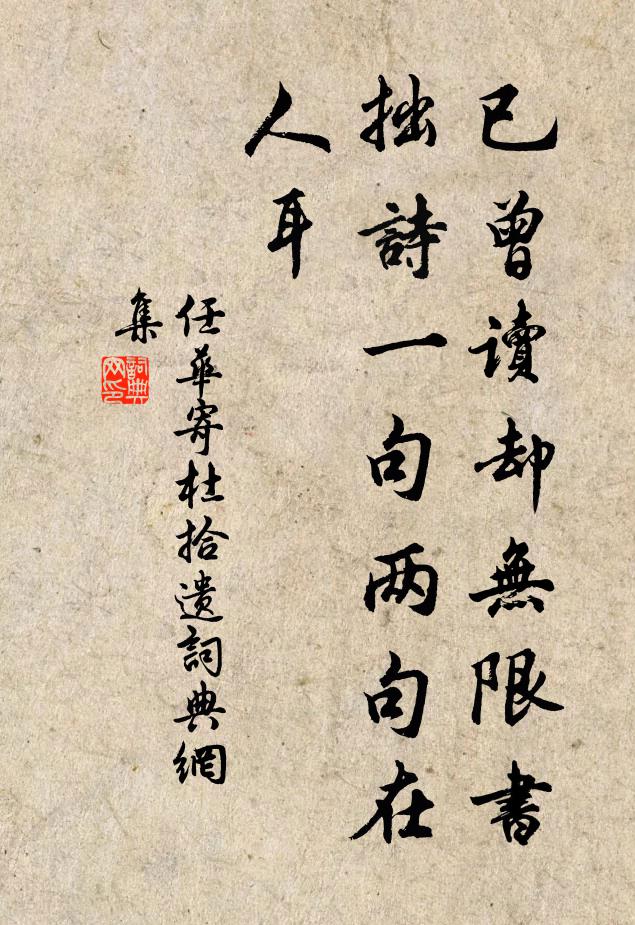 已曾讀却無限書
拙詩一句两句在
人耳
任華寄杜拾遺詞典網
集
詞典
网印